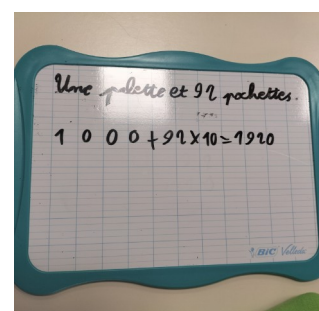 Une palette et 92 pochettes.
1 0 0 0 + 92 x 10 = 1920
BIC Velleda